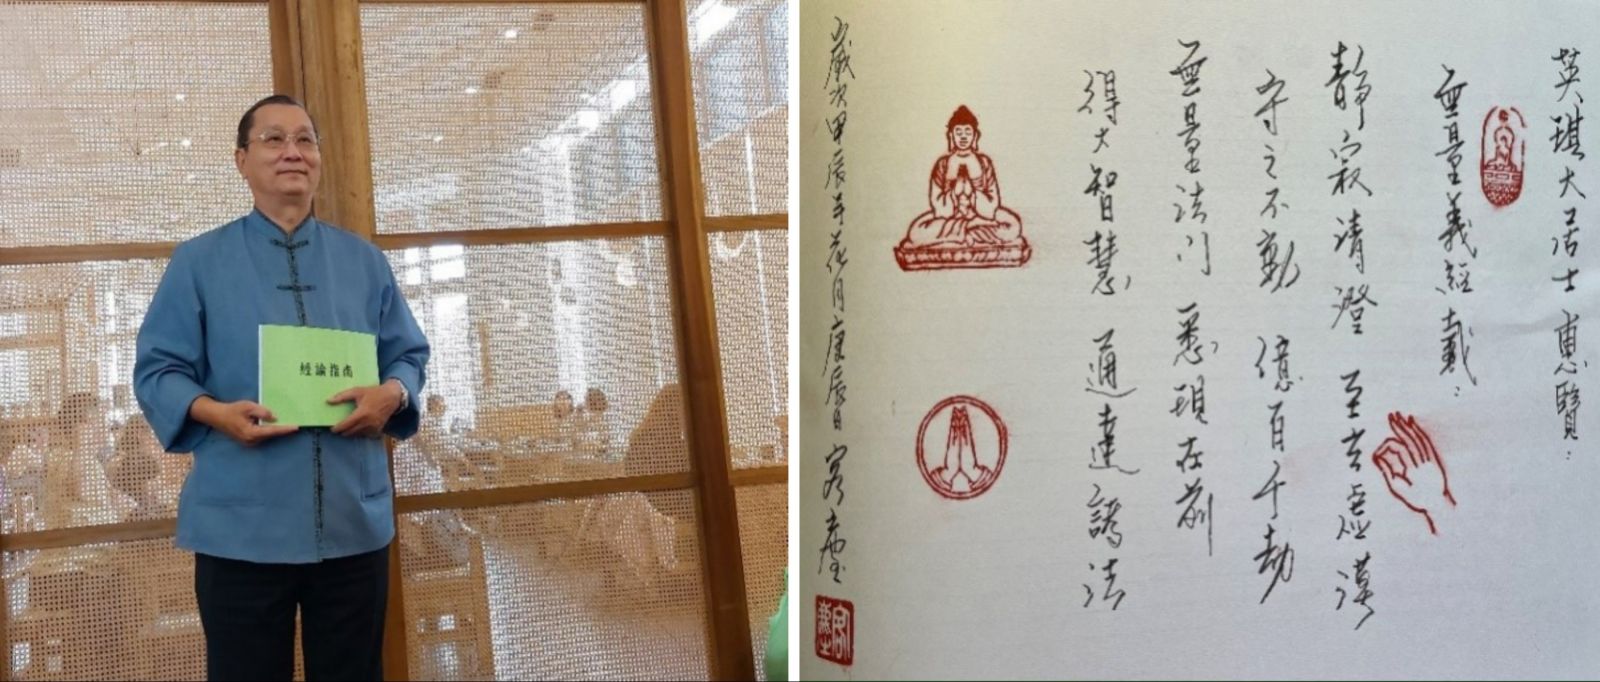 經論指南
英琪大居士惠:
無量義經載:
靜寂清澄 至玄虛漠
守之不動 億百千劫
無量法門 悉現在前
得大智慧 通達諸法
歲次甲辰年花月庚辰日 客塵
客塵